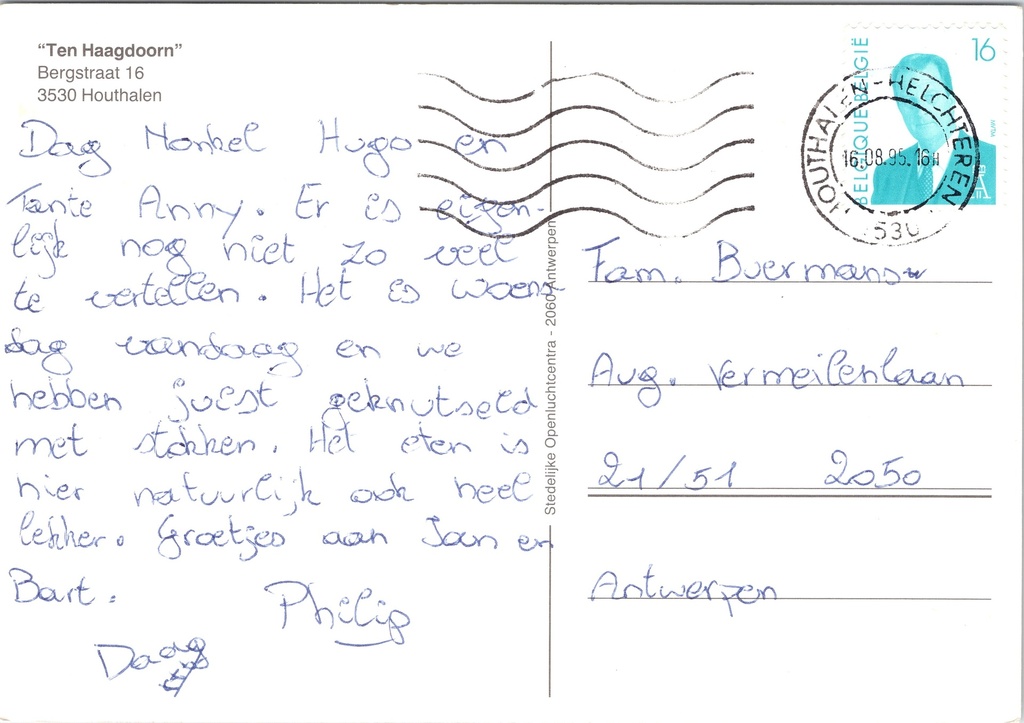 "Ten Haagdoorn"
Bergstraat 16
3530 Houthalen
Dag Nonkel Hugo en
Tante Anny. Er is eigen-
lijk nog niet zo veel
te vertellen. Het is woens-
dag vandaag en we
hebben juist geknutseld
met stokken. Het eten is
hier natuurlijk ook heel
lekker. Groetjes aan Joan en
Bart.
Philip
Daag
Stedelijke Openluchtcentra - 2060 Antwerpen
BELGIQUE BELGIË
16
HOUTHALEN-HELCHTEREN
16.08.95.16H
3530
Fam. Buermans
Aug. Vermeilenlaan
21/51 2050
Antwerpen